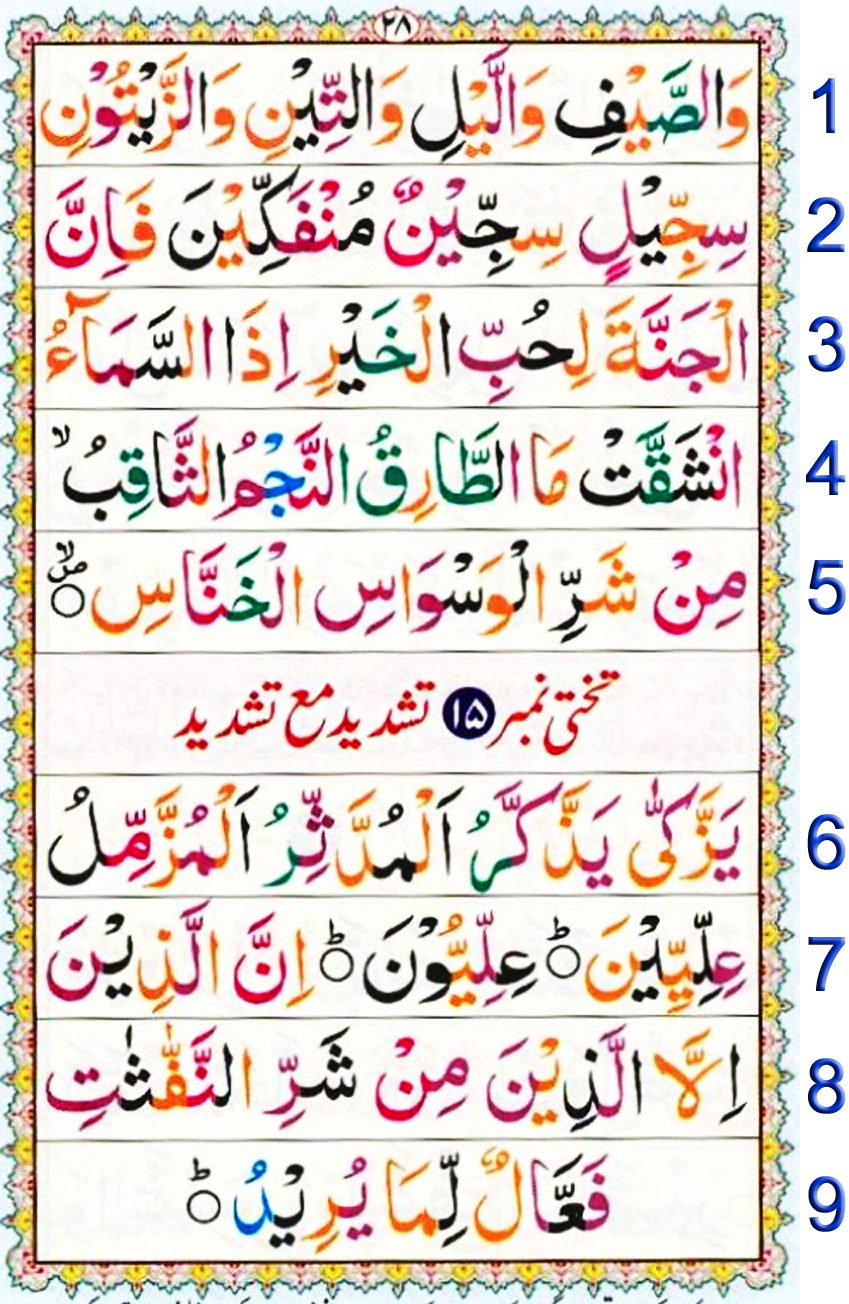 ٢٨
وَالصَّيْفِ وَالَّيْلِ وَالتِّيْنِ وَالزَّيْتُوْنِ 1
سِجِّيْلٍ سِجِّيْنٌ مُنْفَكِّيْنَ فَاِنَّ 2
الْجَنَّةَ لِحُبِّ الْخَيْرِ اِذَا السَّمَآءُ 3
انْشَقَّتْ مَا الطَّارِقُ النَّجْمُ الثَّاقِبُ ۙ 4
مِنْ شَرِّ الْوَسْوَاسِ الْخَنَّاسِ ۝ 5
تختی نمبر ۱۵ تشدید مع تشدید
يَزَّكّٰى يَذَّكَّرُ اَلْمُدَّثِّرُ اَلْمُزَّمِّلُ 6
عِلِّيِّيْنَ ۝ؕ عِلِّيُّوْنَ ۝ؕ اِنَّ الَّذِيْنَ 7
اِلَّا الَّذِيْنَ مِنْ شَرِّ النَّفّٰثٰتِ 8
فَعَّالٌ لِّمَا يُرِيْدُ ۝ؕ 9